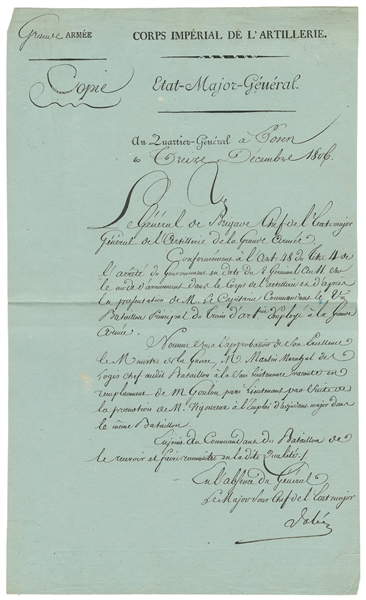 Grande ARMÉE
CORPS IMPÉRIAL DE L'ARTILLERIE.
Copie
Etat-Major-Général.
Au Quartier-Général à Posen
le Treize Décembre 1806.
Le Général de Brigade Chef de l'Etat major
Général de l'Artillerie de la Grande Armée
Conformément à l'Art 48 du titre 4 de
l'arrêté du Gouvernement en date du 2 Germinal An 11 sur
le mode d'avancement dans le Corps de l'artillerie et d'après
la présentation de M. le Capitaine Commandant le
Bataillon Principal du train d'artie Employé à la Grande
Armée.
Nomme sauf l'approbation de Son Excellence
le Ministre de la Guerre, M. Martin Maréchal des
Logis Chef audit Bataillon à la Sous lieutenance vacante en
remplacement de M. passé Lieutenant par suite de
la promotion de M. Vigoureux à l'Emploi d'adjudant major dans
le même Bataillon.
Enjoint au Commandant du Bataillon de
le recevoir et faire reconnaître en la dite Qualité.
En l'absence du Général
Le Major Sous Chef de l'Etat major